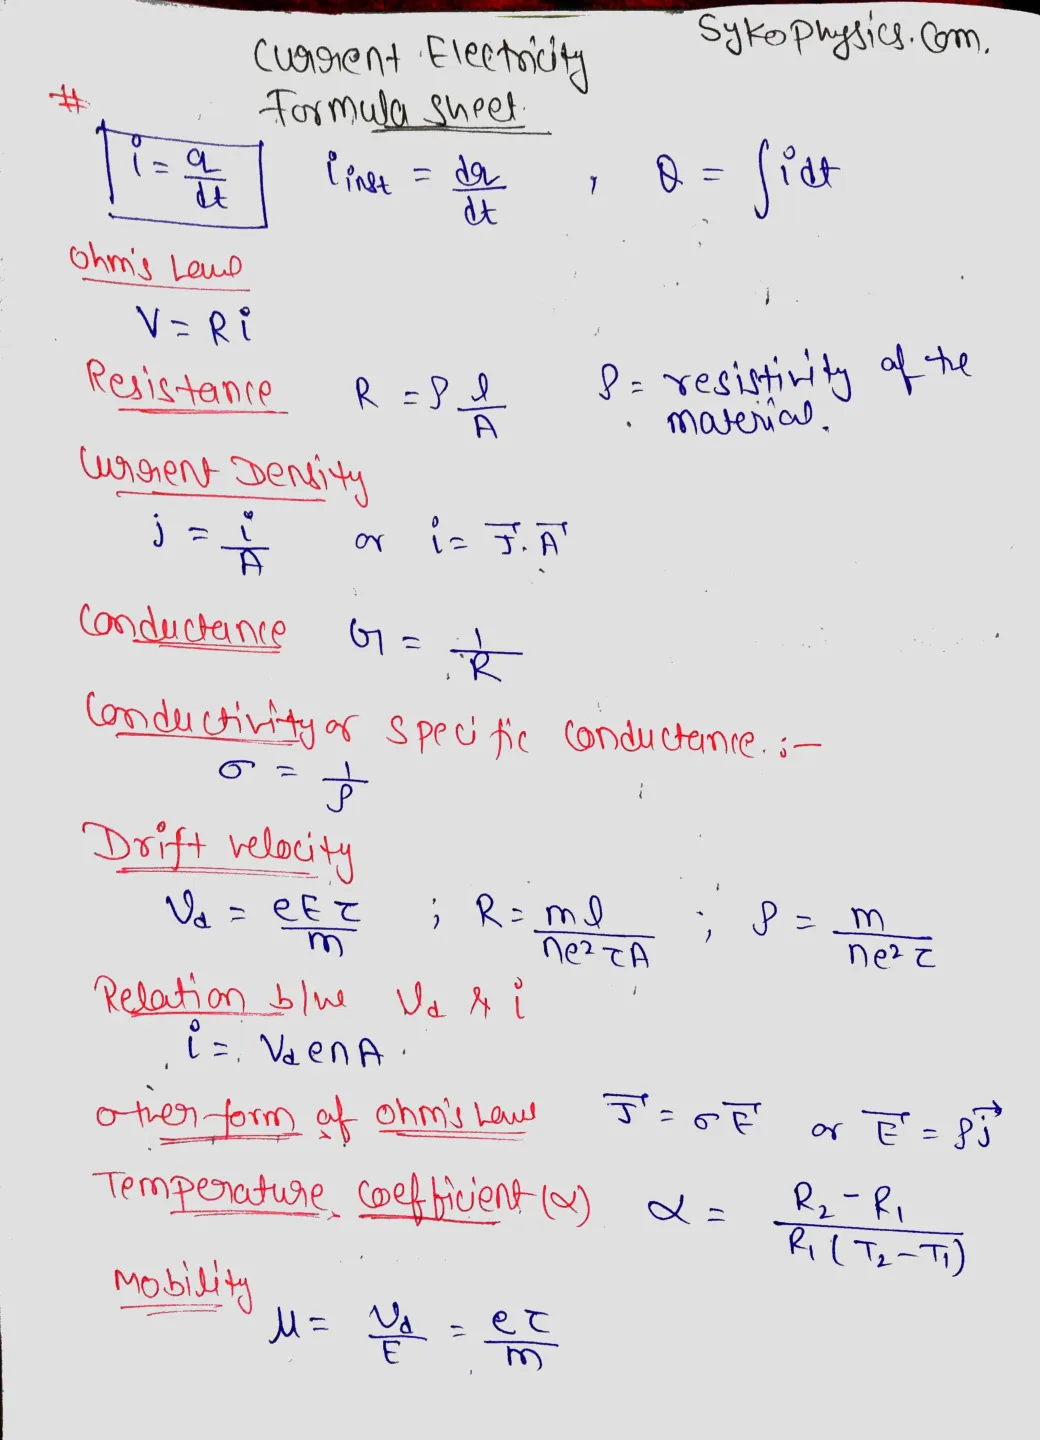 SykoPhysics.Com.
Current Electricity
Formula sheet.
#
i = q/dt    i inst = dq/dt , Q = ∫ i dt
Ohm's Law
V = R i
Resistance    R = ρ l/A    ρ = resistivity of the
material.
Current Density
j = i/A    or    i = J⃗. A⃗
Conductance    G = 1/R
Conductivity or specific conductance. :-
σ = 1/ρ
Drift velocity
Vd = eEτ/m ; R = ml/ne²τA ; ρ = m/ne²τ
Relation b/w Vd & i
i = VdenA.
other form of ohm's Law    J⃗ = σE⃗ or E⃗ = ρj⃗
Temperature coefficient (α)    α = R₂ - R₁/R₁(T₂-T₁)
Mobility
μ = Vd/E = eτ/m